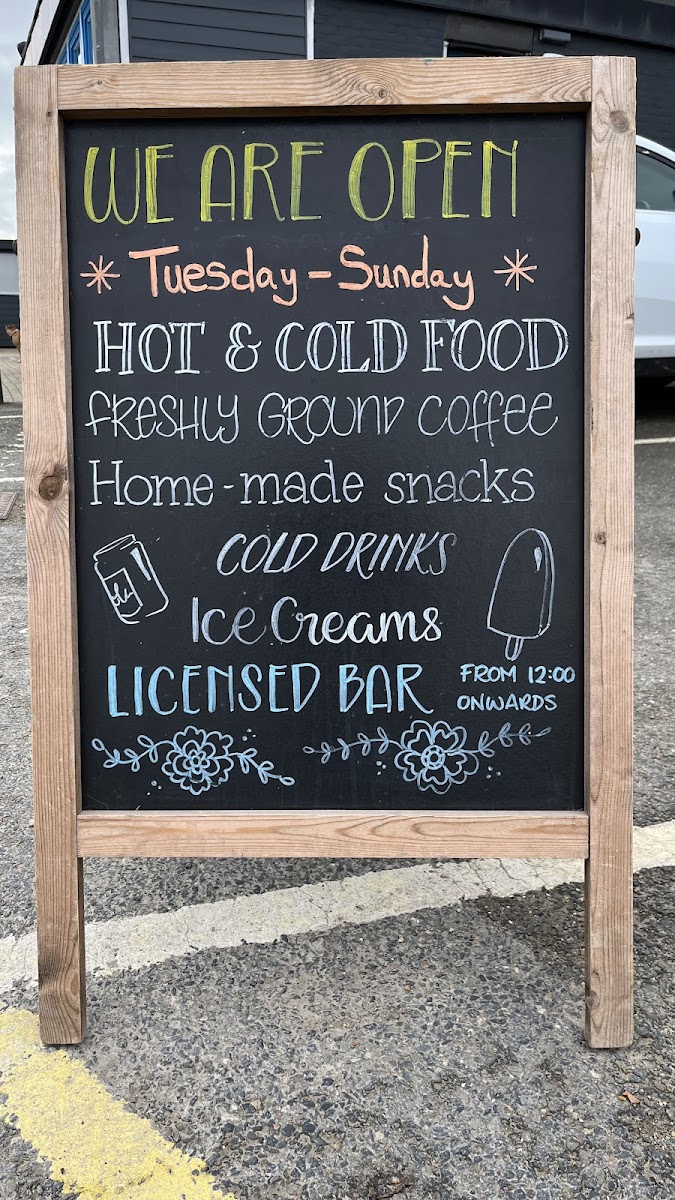 WE ARE OPEN
Tuesday - Sunday
HOT & COLD FOOD
FRESHLY GROUND COFFEE
Home-made snacks
COLD DRINKS
Ice Creams
LICENSED BAR
FROM 12:00
ONWARDS